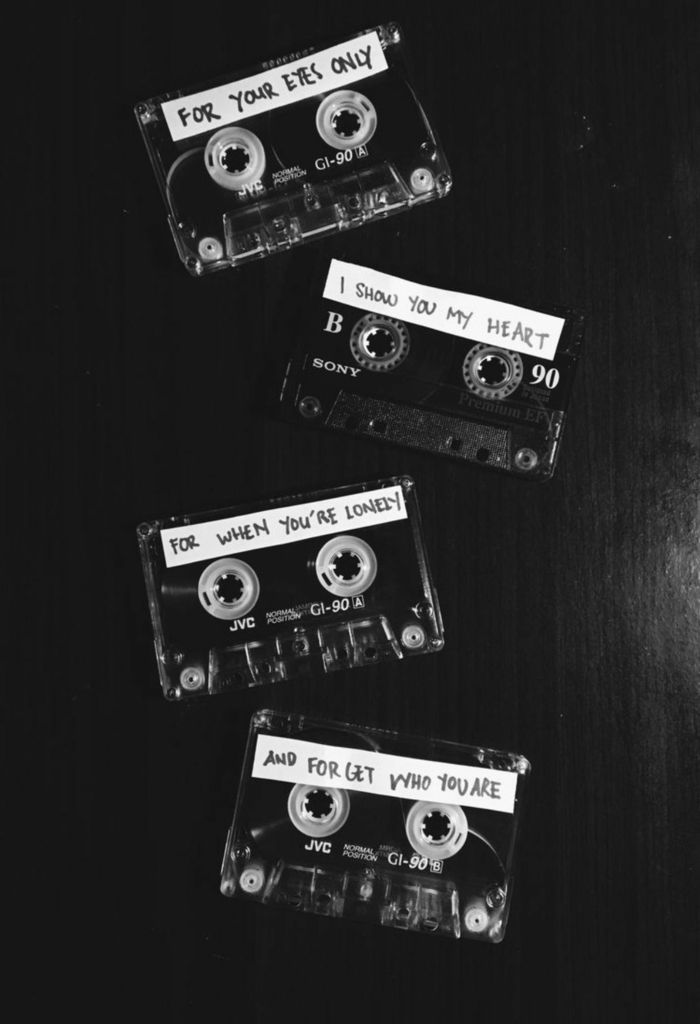 FOR YOUR EYES ONLY
JVC NORMAL POSITION GI-90 A
I SHOW YOU MY HEART
B
SONY
90
Premium EF
FOR WHEN YOU'RE LONELY
JVC NORMAL POSITION GI-90 A
AND FORGET WHO YOU ARE
JVC NORMAL POSITION GI-90 B